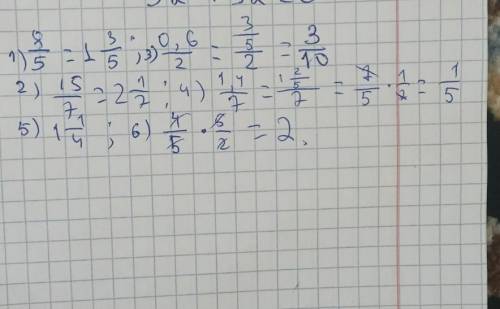 1) 8/5 = 1 3/5 ; 3) 0,6/2 = (3/5)/2 = 3/10
2) 15/7 = 2 1/7 ; 4) 1,4/7 = (1 2/5)/7 = 7/5 · 1/7 = 1/5
5) 1 1/4 ; 6) 4/5 · 5/2 = 2.